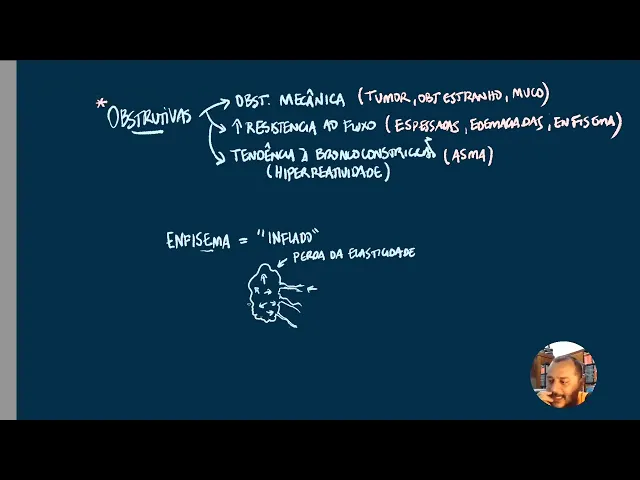 * OBSTRUTIVAS → OBST. MECÂNICA (TUMOR, OBJ ESTRANHO, MUCO)
→ ↑ RESISTENCIA AO FLUXO (ESPESSADAS, EDEMACIADAS, ENFISEMA)
→ TENDÊNCIA À BRONCOCONSTRICÇÃO (ASMA)
(HIPERREATIVIDADE)
ENFISEMA = "INFLADO"
PERDA DA ELASTICIDADE